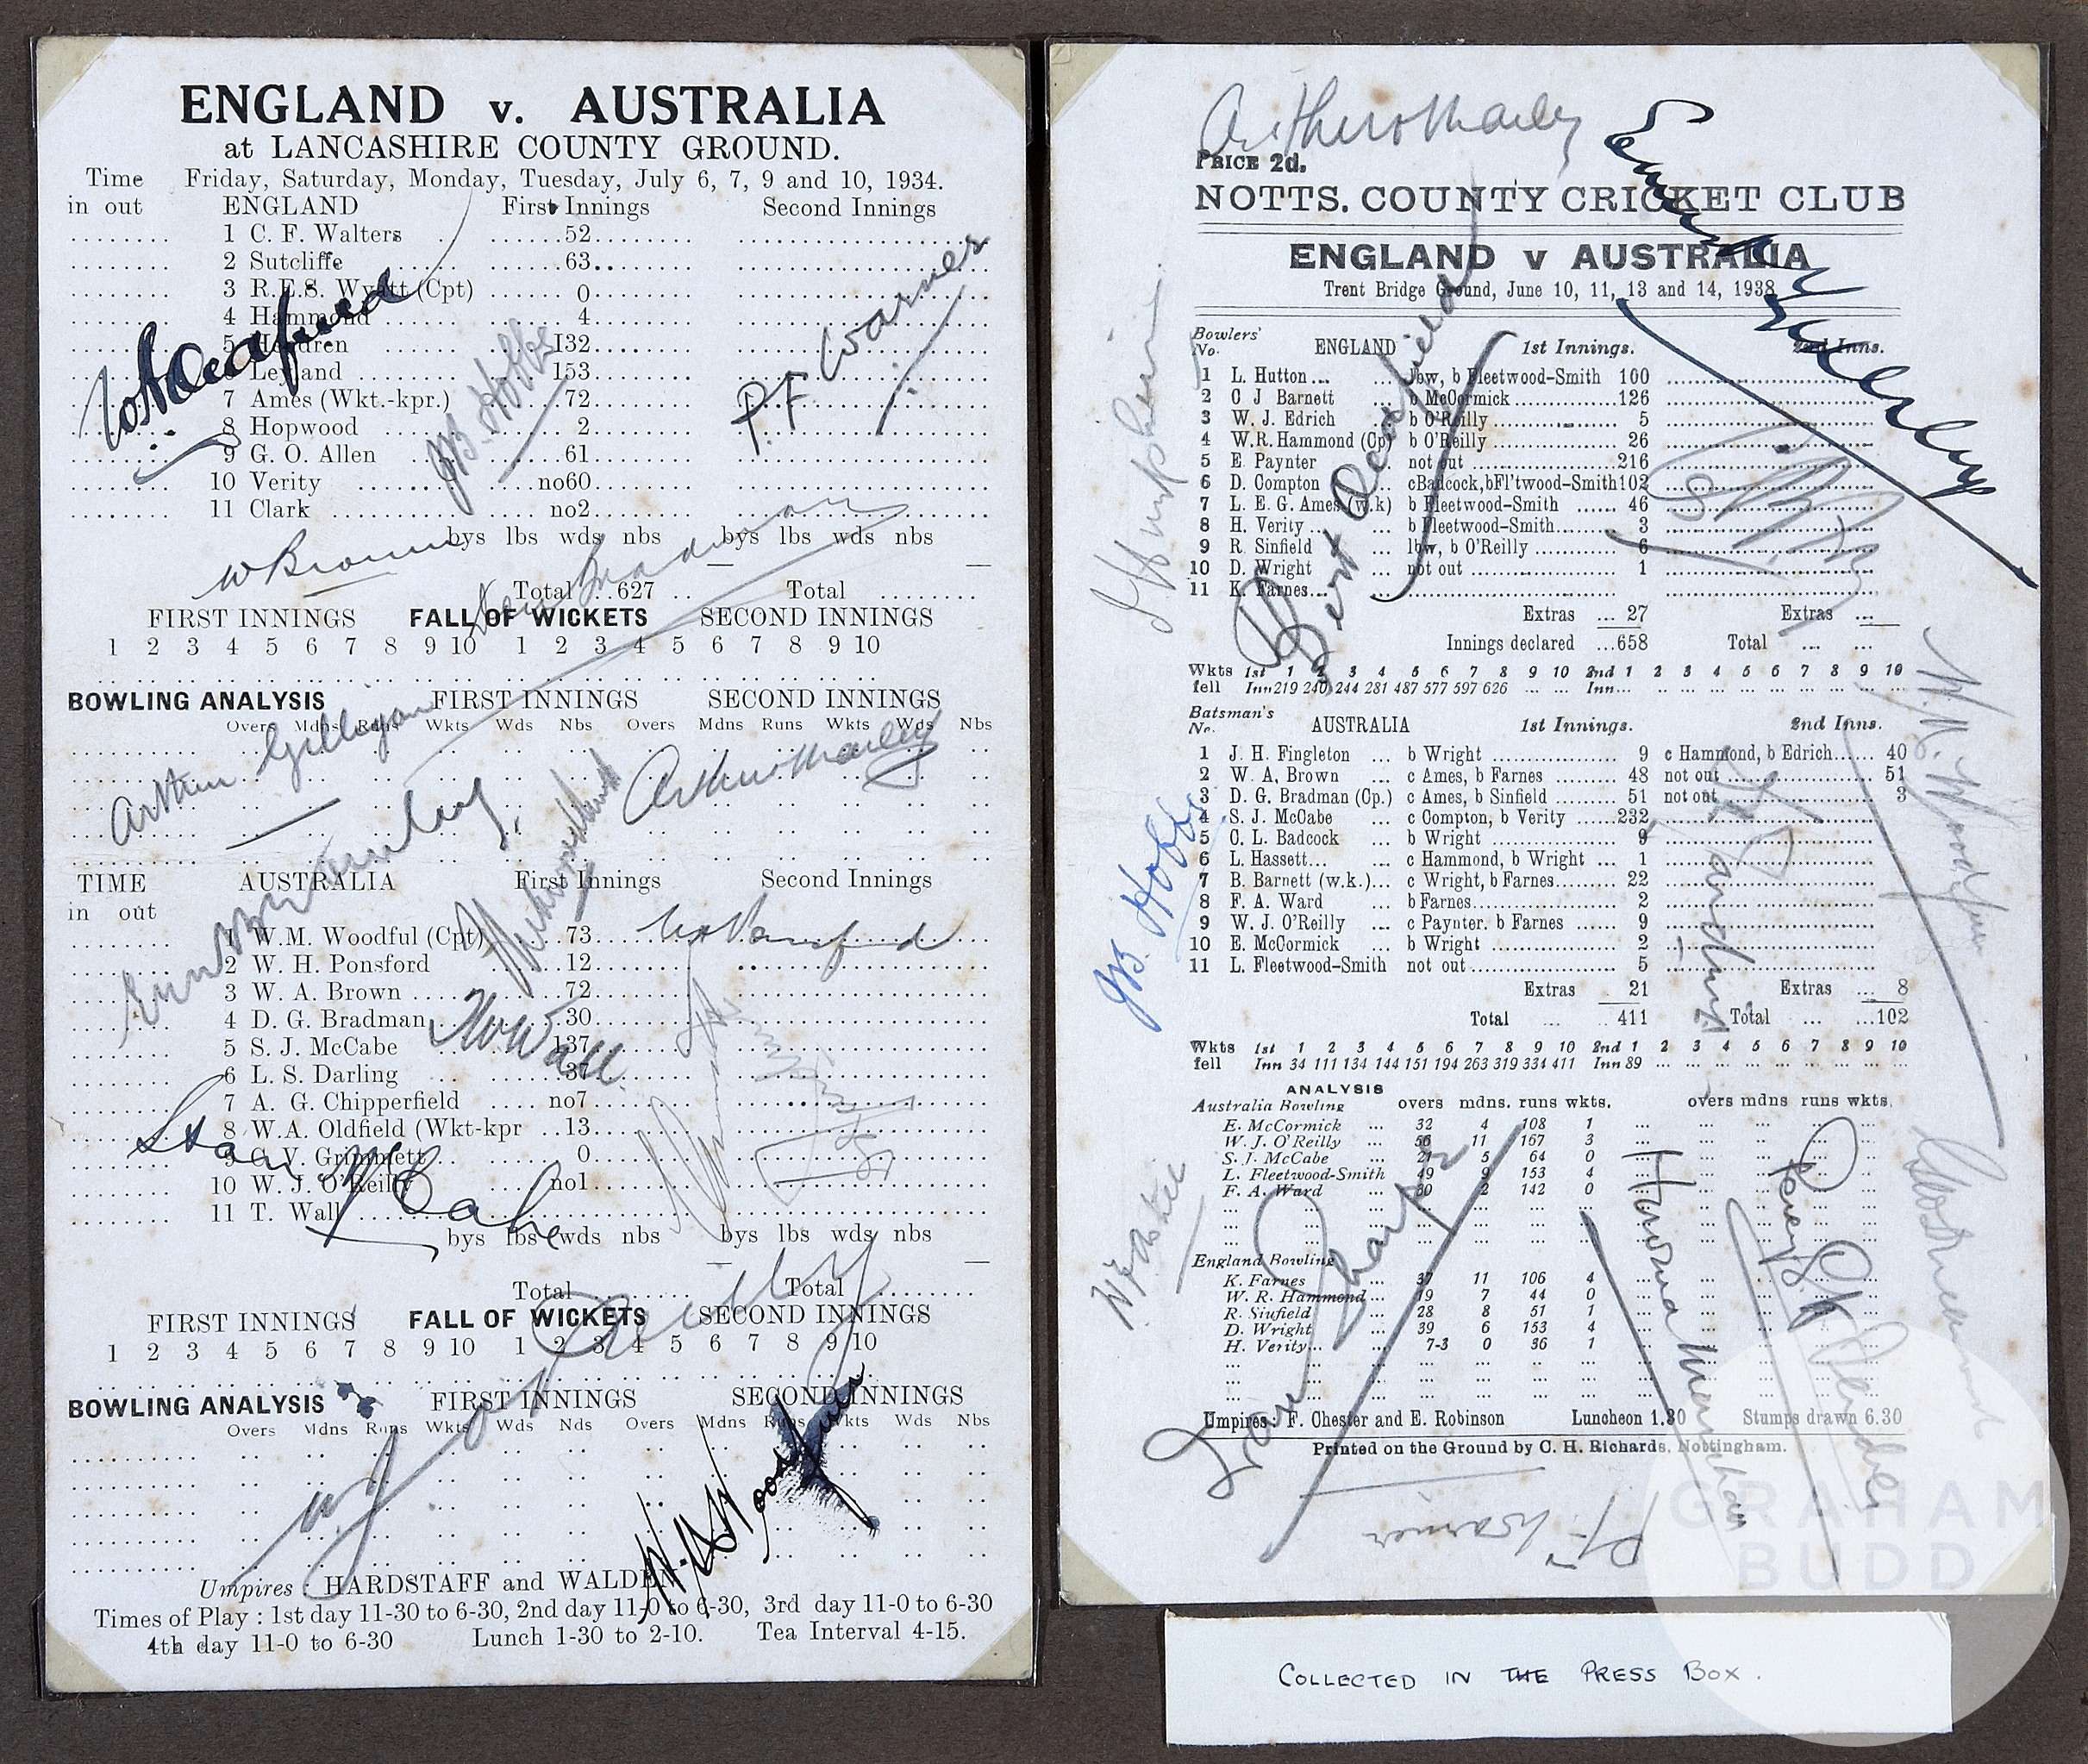 ENGLAND v. AUSTRALIA
at LANCASHIRE COUNTY GROUND.
Time Friday, Saturday, Monday, Tuesday, July 6, 7, 9 and 10, 1934.
in out ENGLAND First Innings Second Innings
1 C. F. Walters 52
2 Sutcliffe 63
3 R.E.S. Wyatt (Cpt) 0
4 Hammond 4
5 Hendren 132
6 Leyland 153
7 Ames (Wkt.-kpr.) 72
8 Hopwood 2
9 G. O. Allen 61
10 Verity no60
11 Clark no2
bys lbs wds nbs bys lbs wds nbs
Total 627 Total
FIRST INNINGS FALL OF WICKETS SECOND INNINGS
1 2 3 4 5 6 7 8 9 10 1 2 3 4 5 6 7 8 9 10
BOWLING ANALYSIS FIRST INNINGS SECOND INNINGS
Overs Mdns Runs Wkts Wds Nbs Overs Mdns Runs Wkts Wds Nbs
TIME AUSTRALIA First Innings Second Innings
in out
1 W.M. Woodful (Cpt) 73
2 W. H. Ponsford 12
3 W. A. Brown 72
4 D. G. Bradman 30
5 S. J. McCabe 137
6 L. S. Darling 37
7 A. G. Chipperfield no7
8 W.A. Oldfield (Wkt-kpr 13
9 C. V. Grimmett 0
10 W. J. O'Reilly no1
11 T. Wall
bys lbs wds nbs bys lbs wds nbs
Total Total
FIRST INNINGS FALL OF WICKETS SECOND INNINGS
1 2 3 4 5 6 7 8 9 10 1 2 3 4 5 6 7 8 9 10
BOWLING ANALYSIS FIRST INNINGS SECOND INNINGS
Overs Mdns Runs Wkts Wds Nds Overs Mdns Runs Wkts Wds Nbs
Umpires : HARDSTAFF and WALDEN
Times of Play : 1st day 11-30 to 6-30, 2nd day 11-0 to 6-30, 3rd day 11-0 to 6-30
4th day 11-0 to 6-30 Lunch 1-30 to 2-10. Tea Interval 4-15.
WA Oldfield
J.B. Hobbs
P.F Warner
W Brown
Don Bradman
Arthur Gilligan
Arthur Mailey
WH Ponsford
T W Wall
Stan McCabe
W J O'Reilly
W.M Woodfull
Arthur Mailey
PRICE 2d.
NOTTS. COUNTY CRICKET CLUB
ENGLAND v AUSTRALIA
Trent Bridge Ground, June 10, 11, 13 and 14, 1938
Bowlers' No. ENGLAND 1st Innings. 2nd Inns.
1 L. Hutton... lbw, b Fleetwood-Smith 100
2 C J Barnett b McCormick 126
3 W. J. Edrich b O'Reilly 5
4 W.R. Hammond (Cp) b O'Reilly 26
5 E. Paynter not out 216
6 D. Compton cBadcock,bFl'twood-Smith 102
7 L. E. G. Ames (w.k) b Fleetwood-Smith 46
8 H. Verity b Fleetwood-Smith 3
9 R. Sinfield lbw, b O'Reilly 6
10 D. Wright not out 1
11 K. Farnes
Extras 27 Extras
Innings declared 658 Total
Wkts 1st 1 2 3 4 5 6 7 8 9 10 2nd 1 2 3 4 5 6 7 8 9 10
fell Inn 219 240 244 281 487 577 597 626 Inn
Batsman's No. AUSTRALIA 1st Innings. 2nd Inns.
1 J. H. Fingleton b Wright 9 c Hammond, b Edrich 40
2 W. A. Brown c Ames, b Farnes 48 not out 51
3 D. G. Bradman (Cp.) c Ames, b Sinfield 51 not out 3
4 S. J. McCabe c Compton, b Verity 232
5 C. L. Badcock b Wright 9
6 L. Hassett... c Hammond, b Wright 1
7 B. Barnett (w.k.) c Wright, b Farnes 22
8 F. A. Ward b Farnes 2
9 W. J. O'Reilly c Paynter. b Farnes 9
10 E. McCormick b Wright 2
11 L. Fleetwood-Smith not out 5
Extras 21 Extras 8
Total 411 Total 102
Wkts 1st 1 2 3 4 5 6 7 8 9 10 2nd 1 2 3 4 5 6 7 8 9 10
fell Inn 34 111 134 144 151 194 263 319 334 411 Inn 89
ANALYSIS
Australia Bowling overs mdns. runs wkts. overs mdns runs wkts.
E. McCormick 32 4 108 1
W. J. O'Reilly 56 11 167 3
S. J. McCabe 21 5 64 0
L. Fleetwood-Smith 49 9 153 4
F. A. Ward 30 2 142 0
England Bowling
K. Farnes 37 11 106 4
W. R. Hammond 19 7 44 0
R. Sinfield 28 8 51 1
D. Wright 39 6 153 4
H. Verity 7-3 0 36 1
Umpires: F. Chester and E. Robinson Luncheon 1.30 Stumps drawn 6.30
Printed on the Ground by C. H. Richards, Nottingham.
Bert Oldfield
J.B. Hobbs
W.M. Woodfull
Percy G.H. Fender
Howard Marshall
P.F Warner
COLLECTED IN THE PRESS BOX.
GRAHAM
BUDD